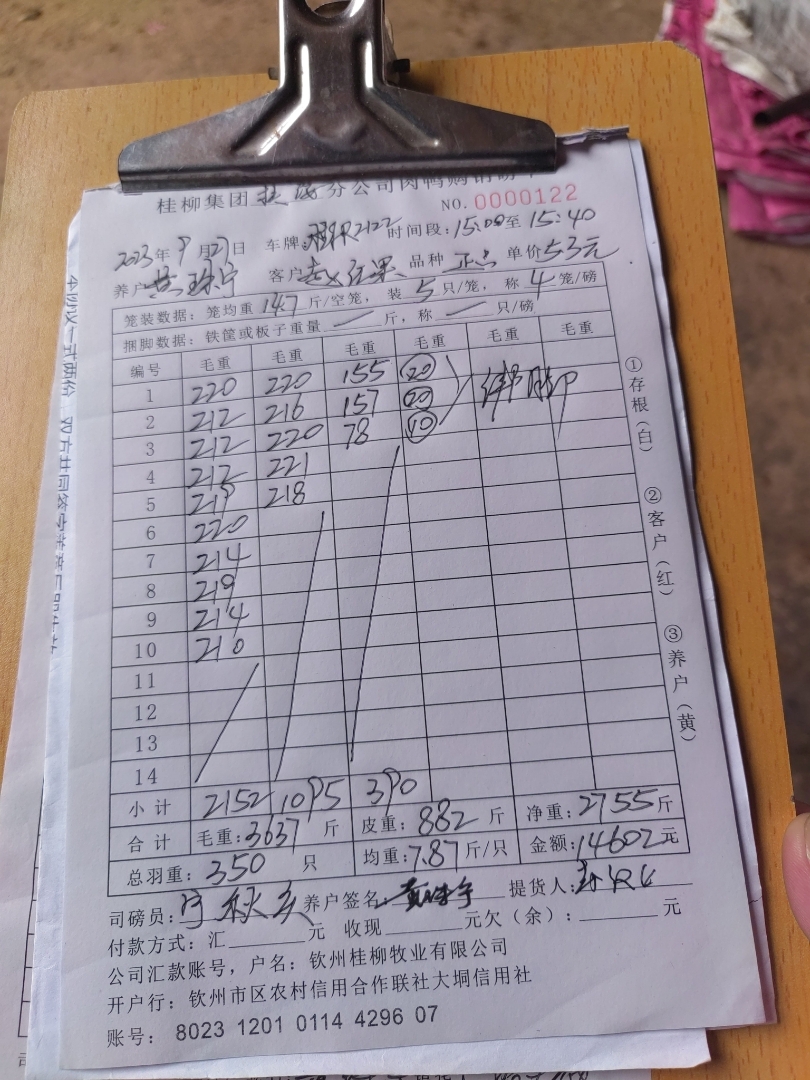 桂柳集团 分公司肉鸭购销磅单
NO. 0000122
2023年9月21日 车牌: R2122 时间段:15:00至15:40
养户 黄珠宁 客户 红果 品种 单价5.3元
笼装数据:笼均重14.7斤/空笼, 装5只/笼, 称4笼/磅
捆脚数据:铁筐或板子重量 — 斤,称 — 只/磅
编号 毛重 毛重 毛重 毛重 毛重 毛重
1 220 220 155 20
2 212 216 157 20
3 212 220 78 10
4 212 221
5 219 218
6 220
7 214
8 219
9 214
10 210
11
12
13
14
小计 2152 1095 390
合计 毛重:3637斤 皮重:882斤 净重:2755斤
总羽重:350只 均重:7.87斤/只 金额:14602元
司磅员: 养户签名:黄珠宁 提货人:
付款方式:汇 元 收现 元欠(余): 元
公司汇款账号,户名:钦州桂柳牧业有限公司
开户行:钦州市区农村信用合作联社大垌信用社
账号: 8023 1201 0114 4296 07
①存根(白) ②客户(红) ③养户(黄)